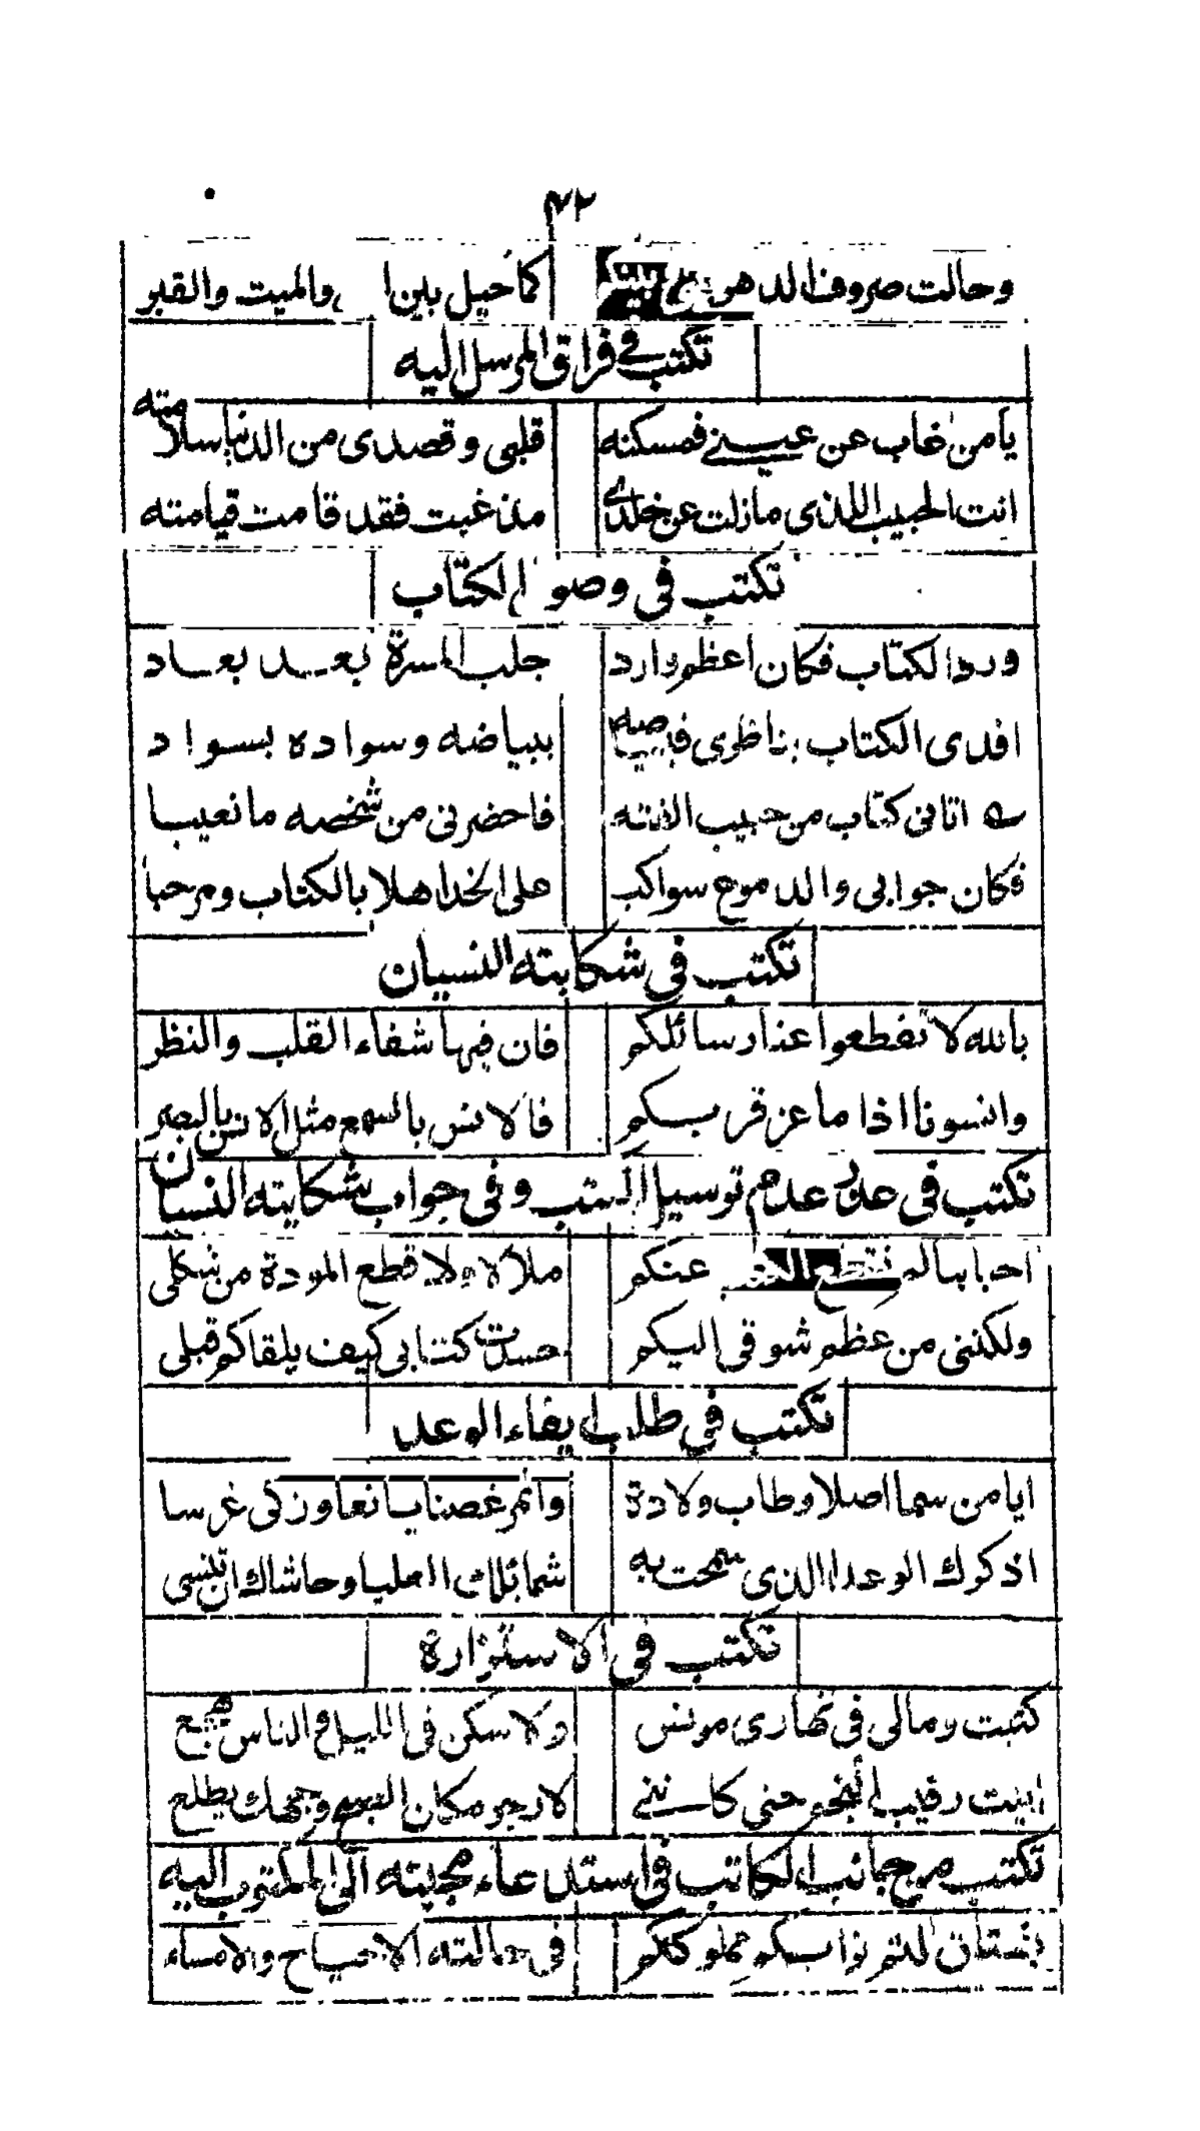 ٧٢
وحالت صروف الدهر كما حيل بين والميت والقبر
تكتب في فراق المرسل اليه
يا من غاب عن عيني فمسكنه قلبي وقصدى من الدنيا سلامته
انت الحبيب اللذى مازلت عن خلدي مذ غبت فقد قامت قيامته
تكتب فى وصول الكتاب
ورد الكتاب فكان اعظم وارد جلب المسرة بعد بعاد
افدى الكتاب بناظرى فبيصيه ببياضه وسواده بسواد
اتانى كتاب من حبيب الفته فاحضرنى من شخصه ما نعيبا
فكان جوابى والدموع سواكب على الخد اهلا بالكتاب ومرحبا
تكتب فى شكايته النسيان
بالله لا تقطعوا عنا رسائلكم فان فيها شفاء القلب والنظر
وانسونا اذا ما عز قربكم فالانس بالسمع مثل الانس بالبصر
تكتب فى عذر عدم توسيل الكتب وفى جواب شكايته النسيان
احبابنا لم عنكم ملالا ولا قطع المودة من شكلى
ولكننى من عظم شوقى اليكم حسدت كتابى كيف يلقاكم قبلى
تكتب فى طلب ايفاء الوعد
ايا من سما اصلا وطاب ولادة واثمر غصنا يانعا وزكى غرسا
اذكرك الوعد الذى سمحت به شمائلك العليا وحاشاك ان تنسى
تكتب فى الاستزارة
كتبت ومالى فى نهارى مونس ولا سكن فى الليل والناس هجع
ابيت رقيب النجم حتى كاننى لارجو مكان النجم وجهك يطلع
تكتب من جانب الكاتب فى استدعاء مجيئته الى المكتوب اليه
بوابكم مملوككم فى حالته الاصباح والامساء